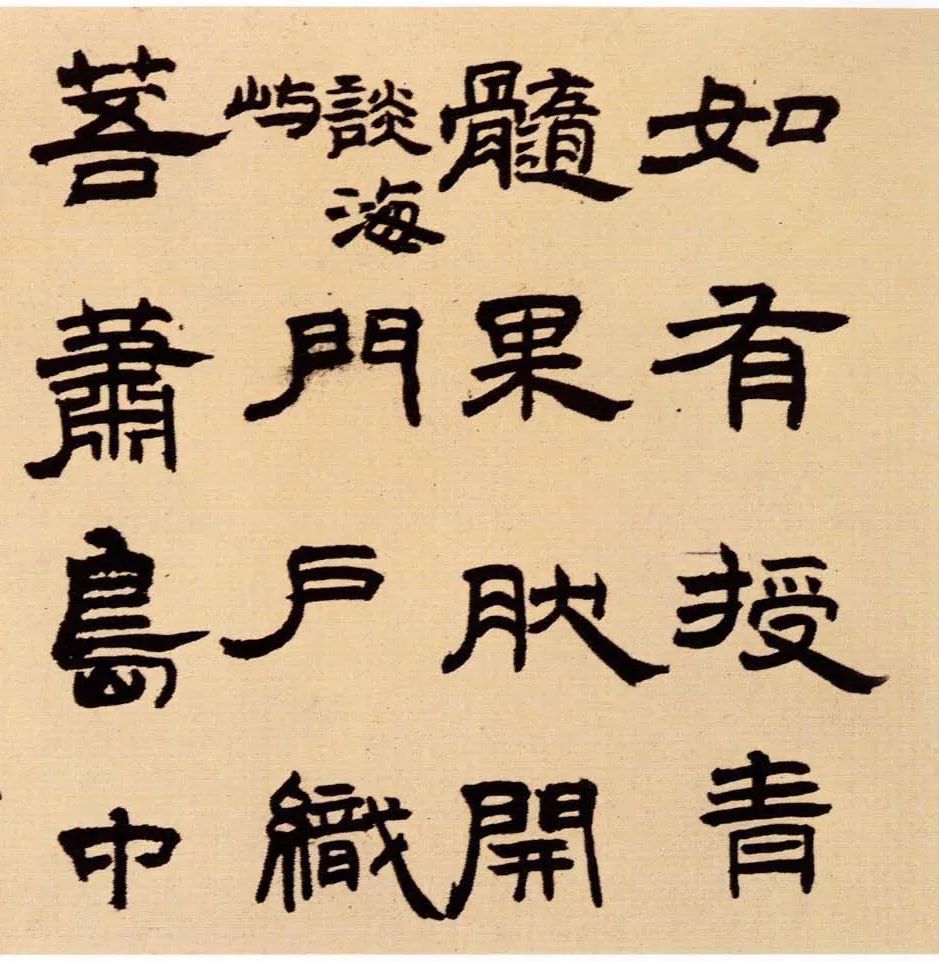 如有授青
髓果肰開
談海
屿
門戶織
菩蕭島中